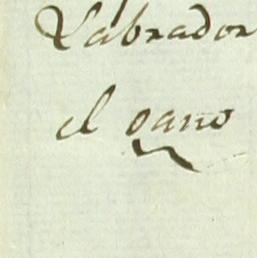 Labrador
el gano